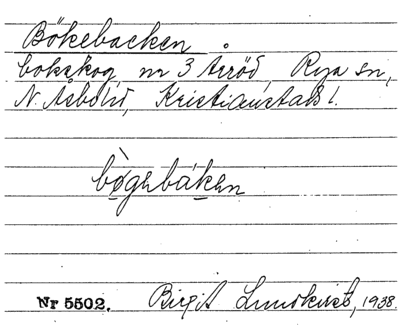 Bökebacken
bokskog, nr 3 Årröd, Rya sn,
N. Åsbo hd, Kristianstads l.
bø̀gəbákən
Nr 5502. Birgit Lundkvist, 1938.